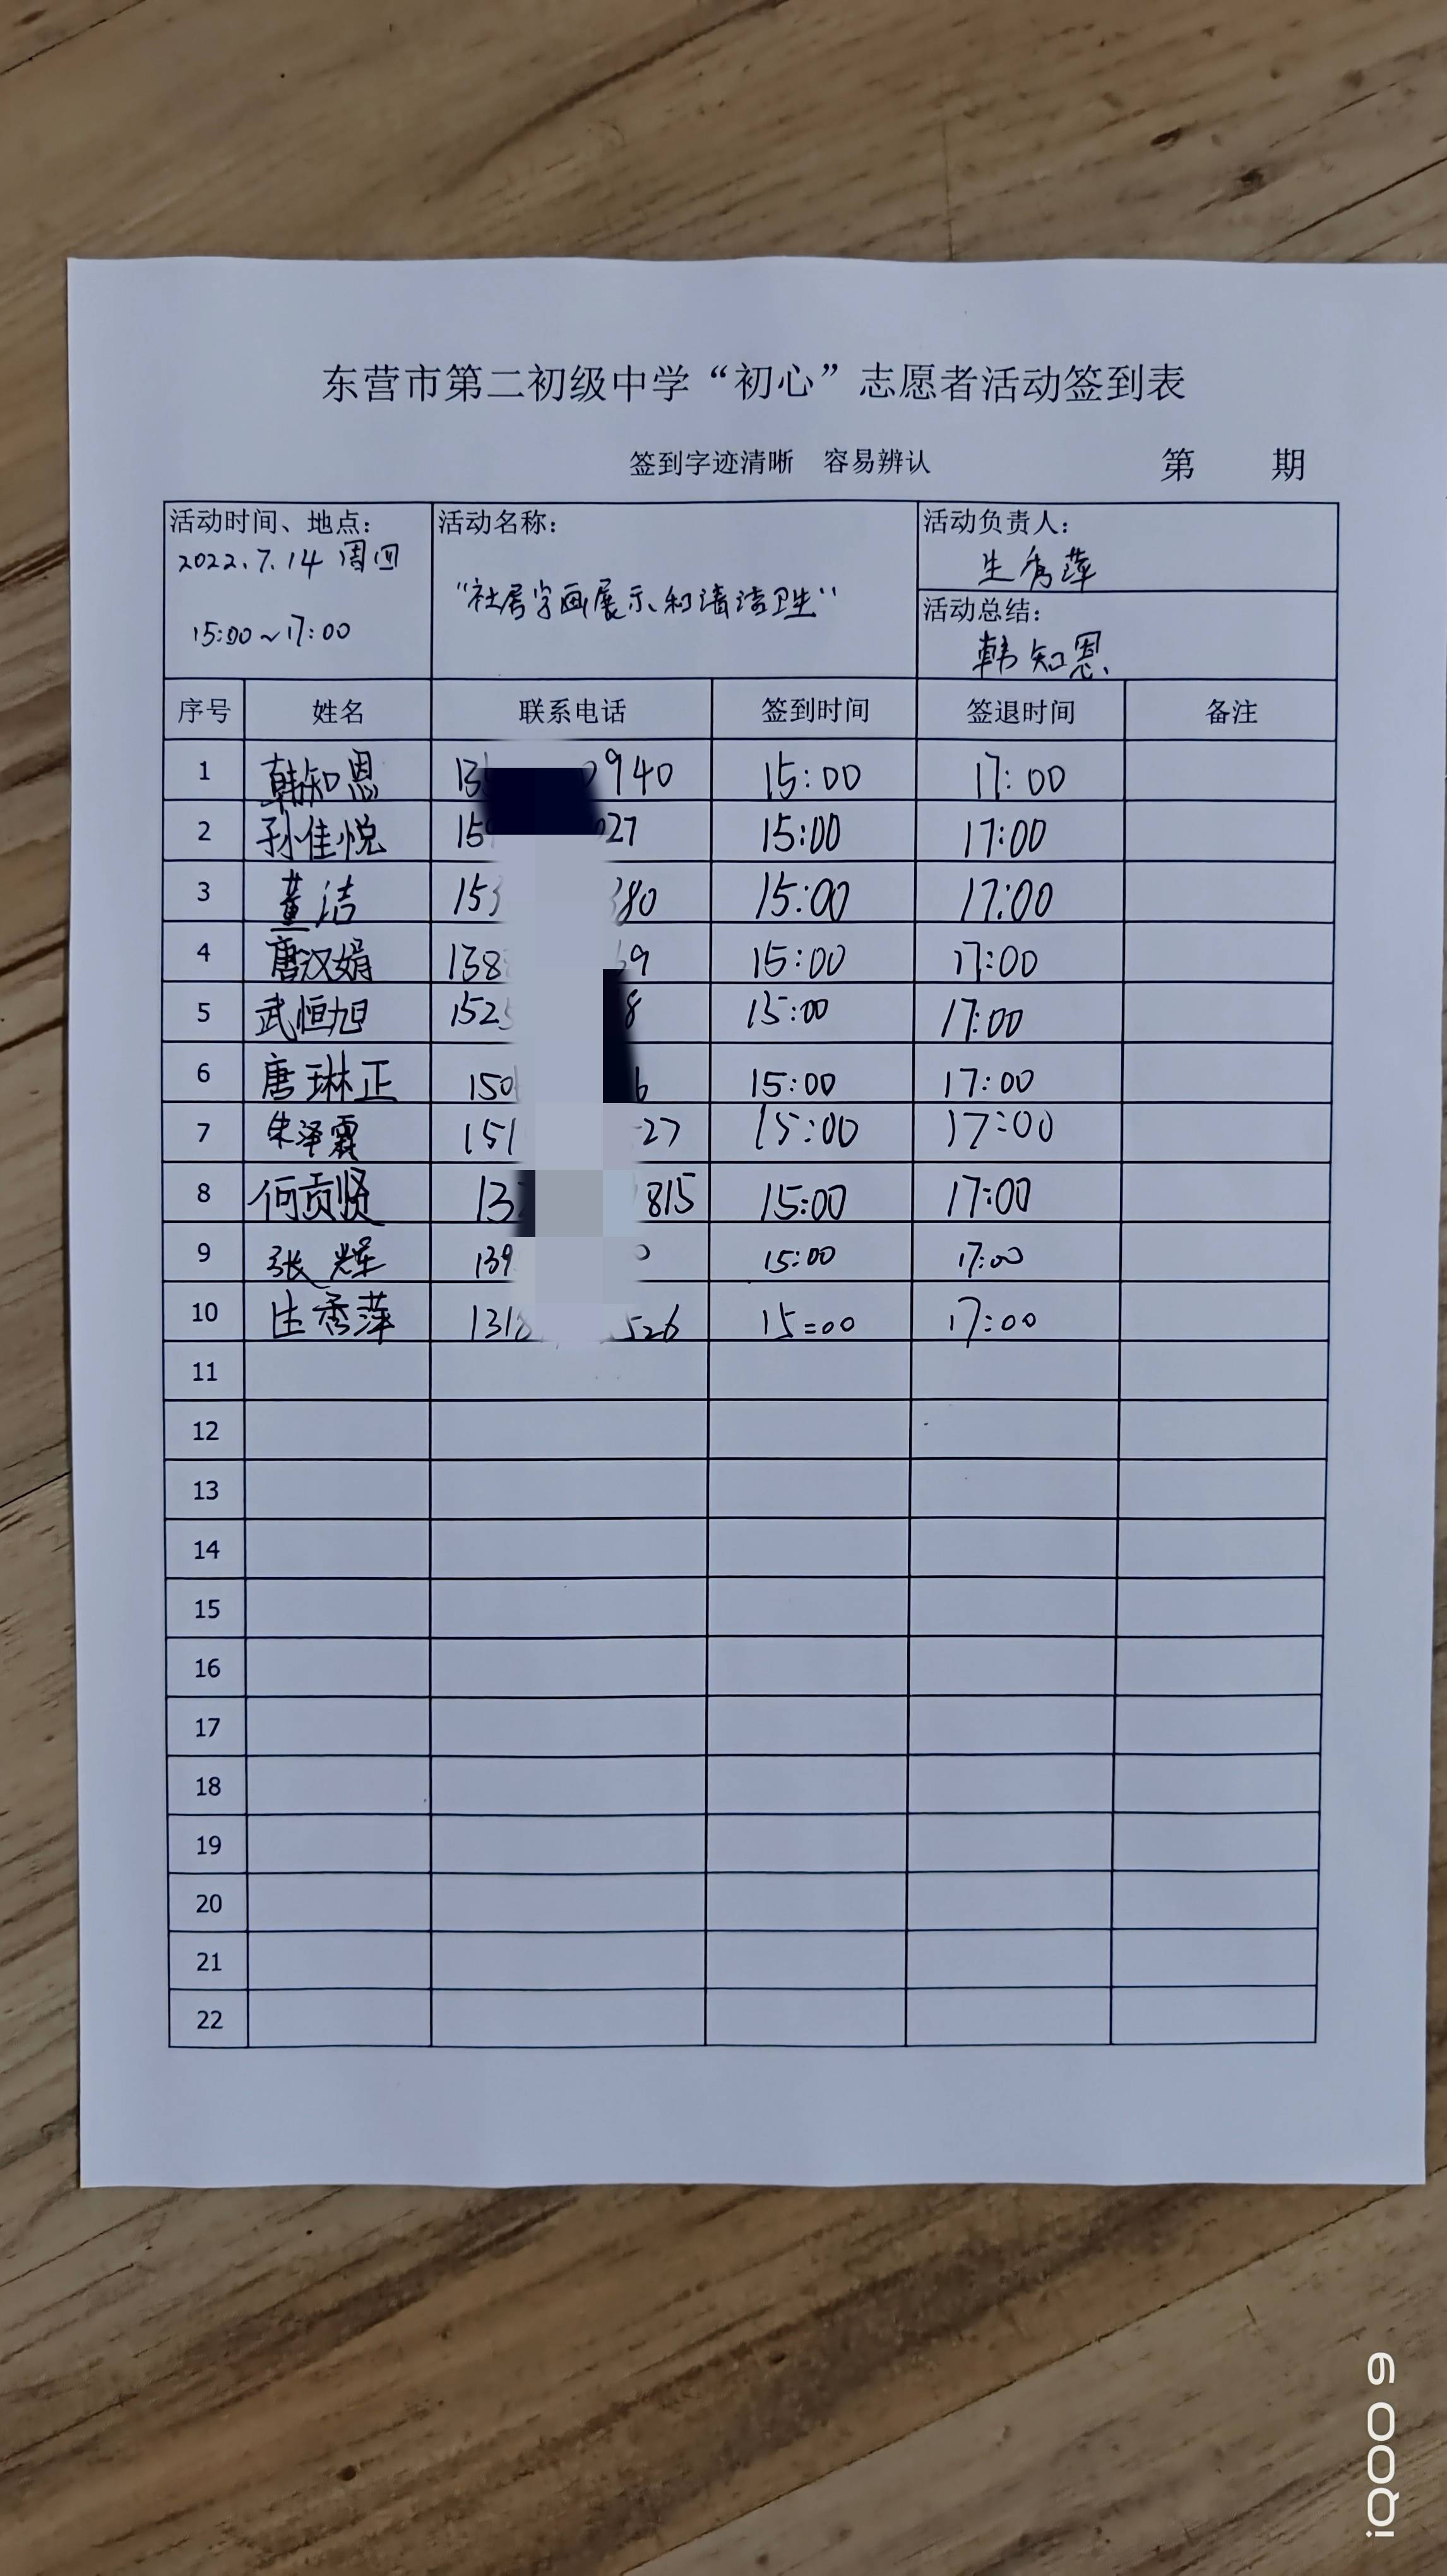 东营市第二初级中学“初心”志愿者活动签到表
签到字迹清晰 容易辨认 第 期
活动时间、地点： 活动名称： 活动负责人：
2022.7.14 周四 生秀萍
“社居字画展示和清洁卫生” 活动总结：
15:00~17:00 韩知恩
序号 姓名 联系电话 签到时间 签退时间 备注
1 韩知恩 13 940 15:00 17:00
2 孙佳悦 15 27 15:00 17:00
3 董洁 153 80 15:00 17:00
4 唐汉娟 138 9 15:00 17:00
5 武恒旭 152 8 15:00 17:00
6 唐琳正 150 6 15:00 17:00
7 朱泽霖 151 27 15:00 17:00
8 何贡贤 13 815 15:00 17:00
9 张辉 139 15:00 17:00
10 生秀萍 1318 526 15:00 17:00
11
12
13
14
15
16
17
18
19
20
21
22
iQOO 9